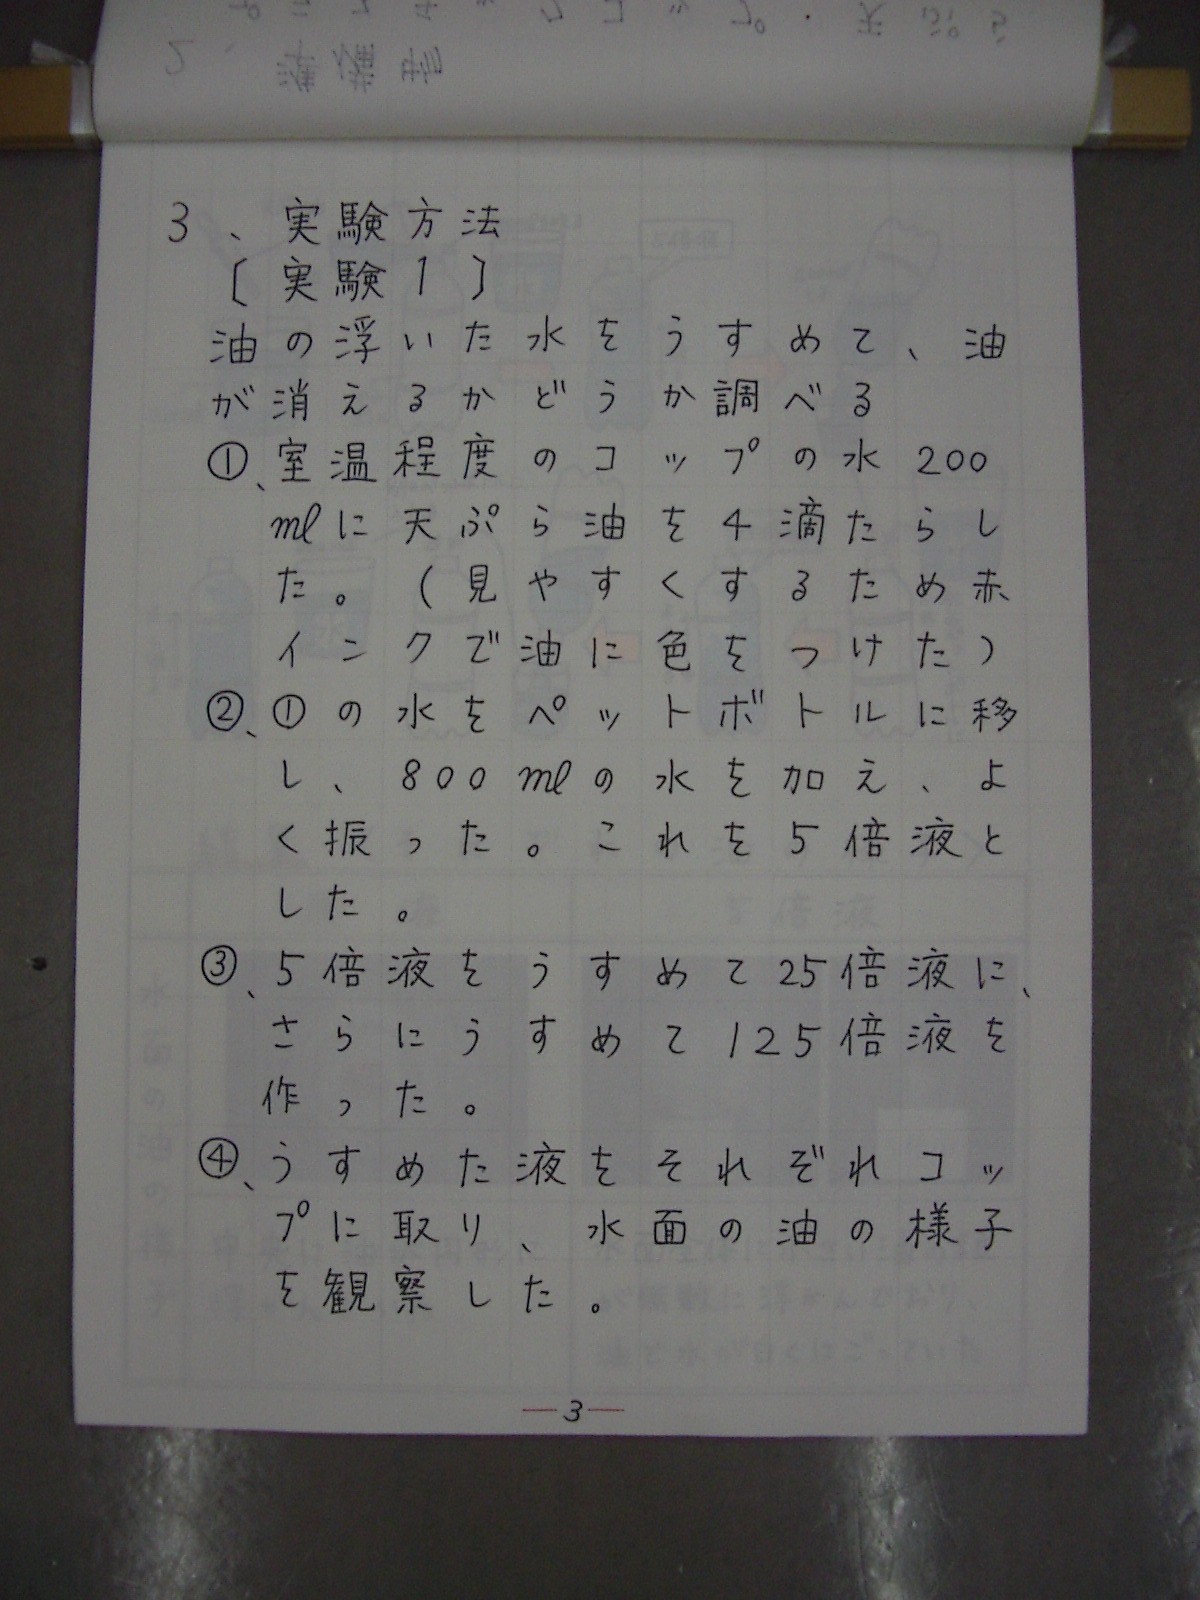 3、実験方法
〔実験1〕
油の浮いた水をうすめて、油
が消えるかどうか調べる
①、室温程度のコップの水200
mlに天ぷら油を4滴たらし
た。(見やすくするため赤
インクで油に色をつけた)
②、①の水をペットボトルに移
し、800mlの水を加え、よ
く振った。これを5倍液と
した。
③、5倍液をうすめて25倍液に、
さらにうすめて125倍液を
作った。
④、うすめた液をそれぞれコッ
プに取り、水面の油の様子
を観察した。
3